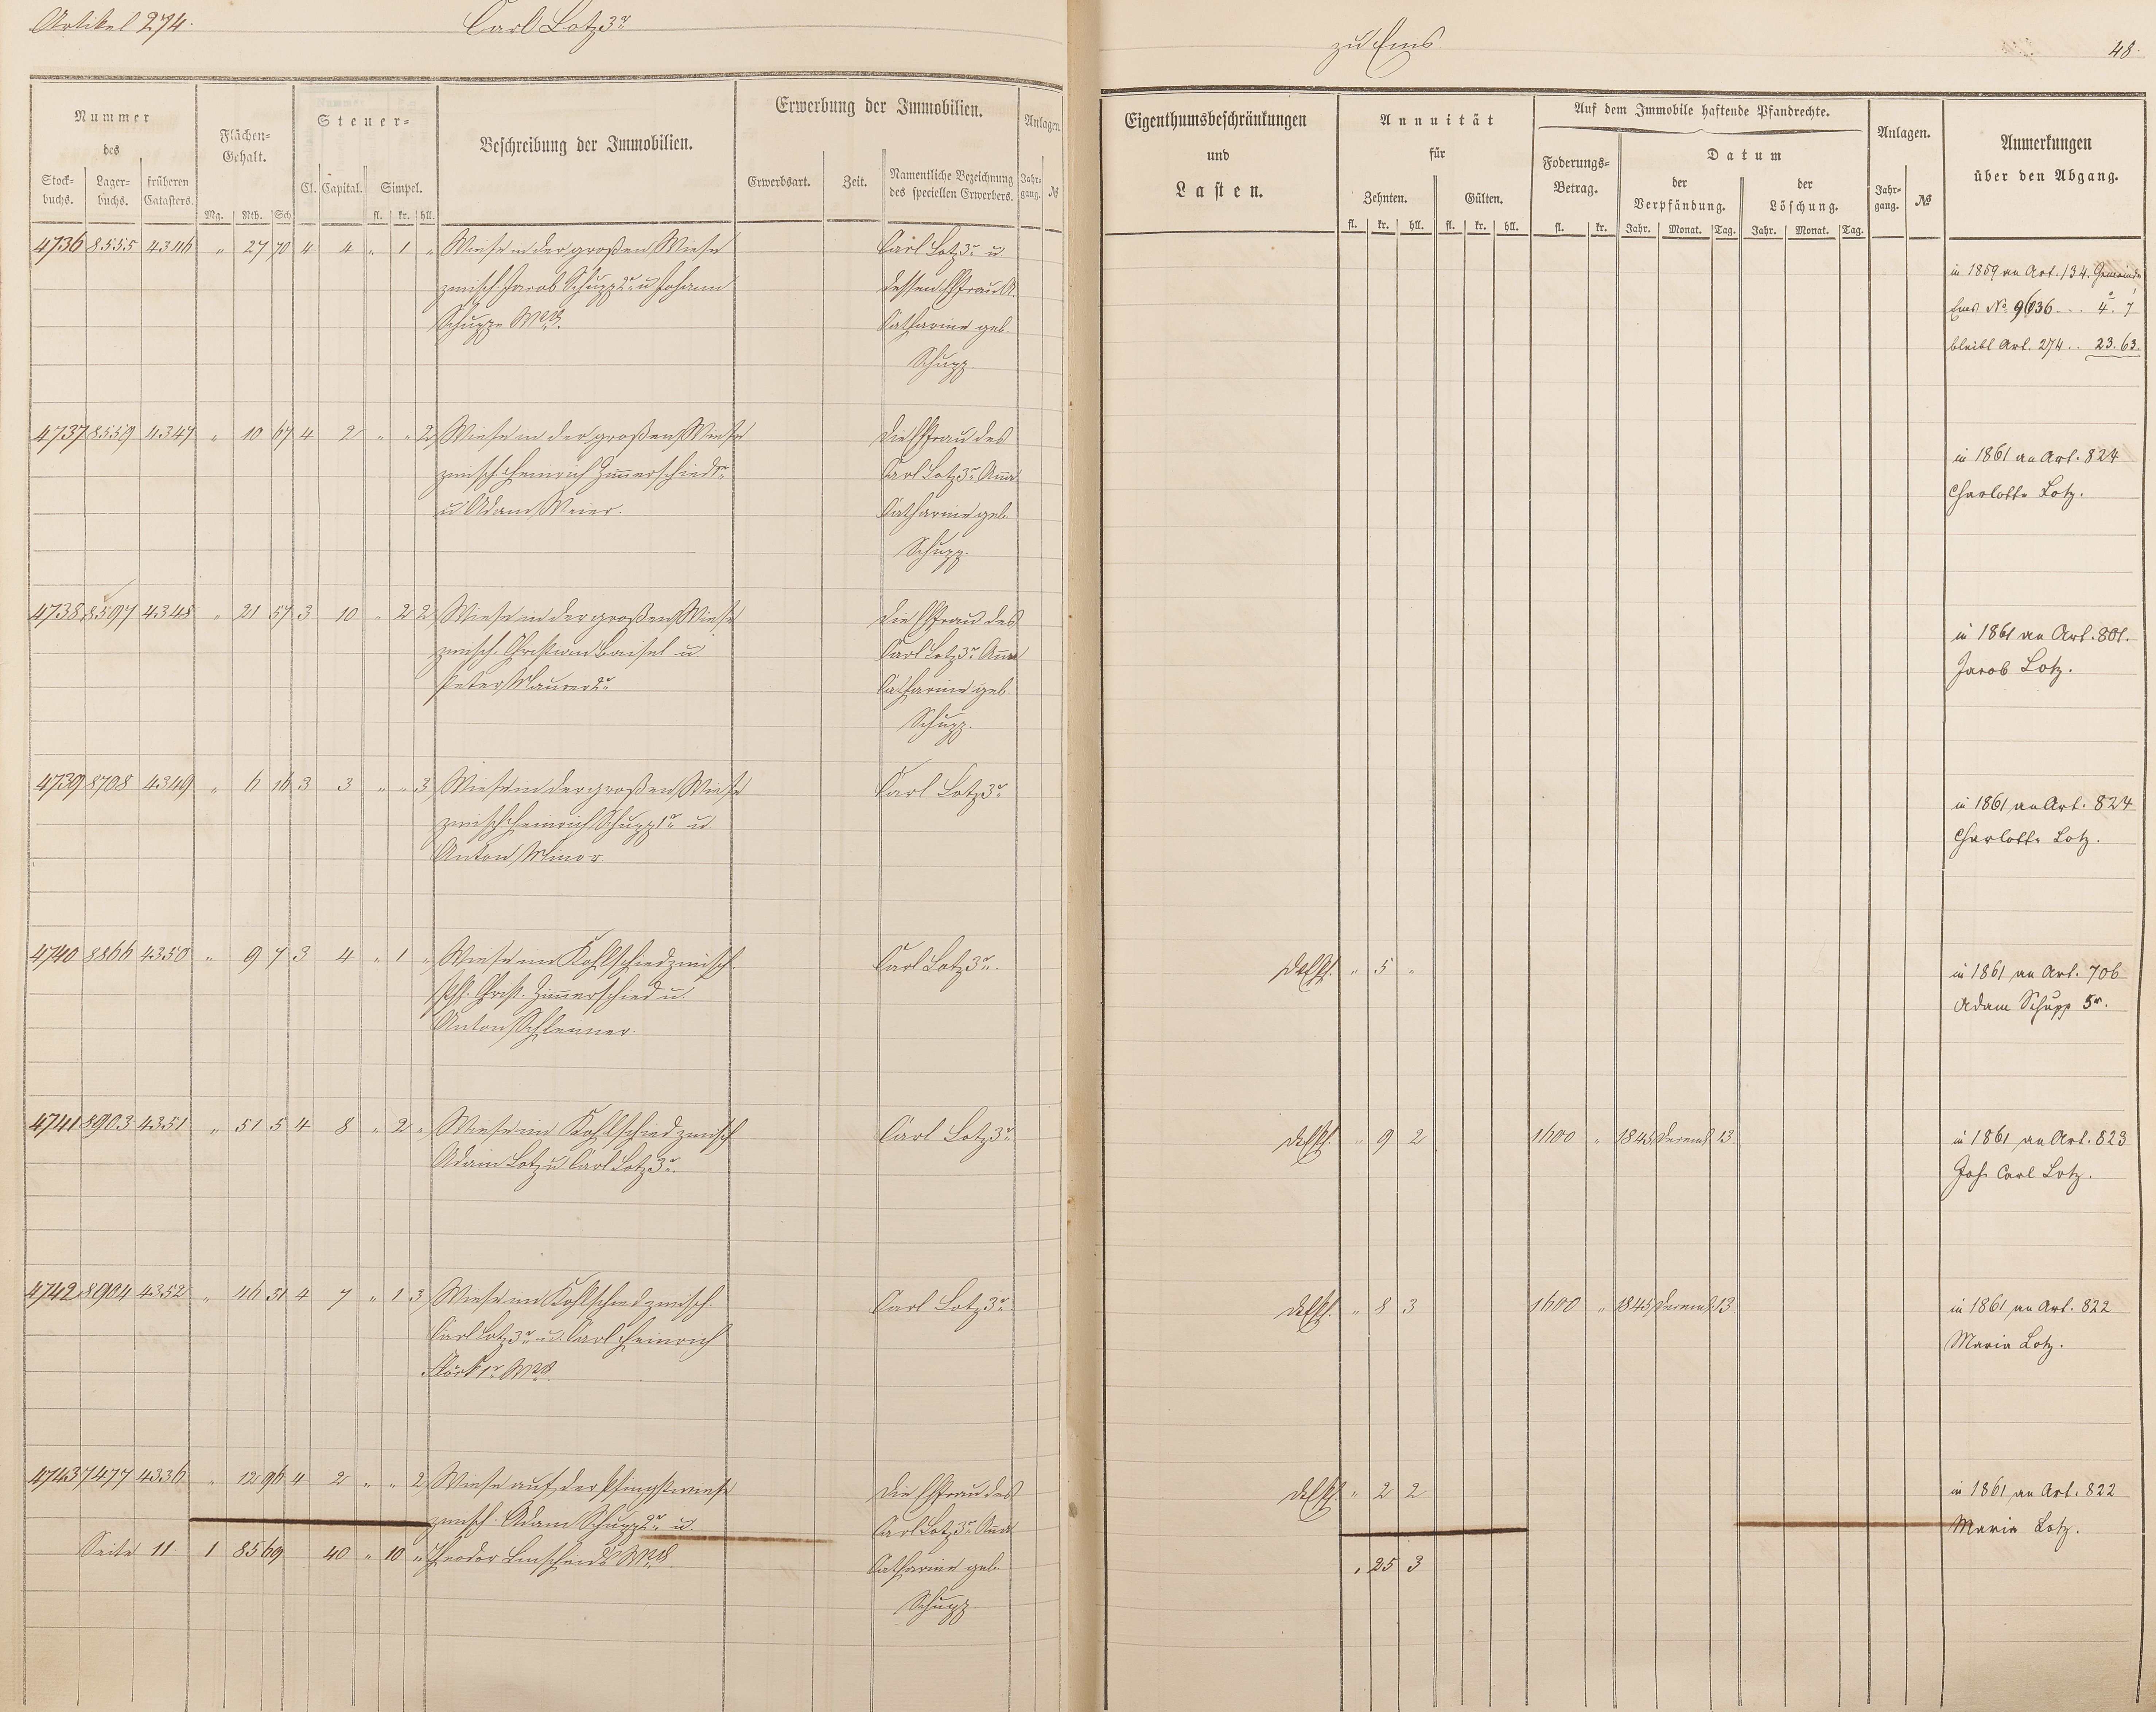 Artikel 274. Carl Lotz 3r zu Ems. 48.
Nummer des
Stockbuchs. Lagerbuchs. früheren Catasters.
Flächen-Gehalt.
Mg. Rth. Sch
Steuer-
Cl. Capital. Simpel.
fl. kr. hll.
Beschreibung der Immobilien.
Erwerbung der Immobilien.
Erwerbsart. Zeit. Namentliche Bezeichnung des speciellen Erwerbers.
Anlagen.
Jahr-gang. №
Eigenthumsbeschränkungen
und
Lasten.
Annuität
für
Zehnten. Gülten.
fl. kr. hll. fl. kr. hll.
Auf dem Immobile haftende Pfandrechte.
Foderungs-Betrag.
fl. kr.
Datum
der Verpfändung. der Löschung.
Jahr. Monat. Tag. Jahr. Monat. Tag.
Anlagen.
Jahr-gang. №
Anmerkungen
über den Abgang.
4736 8555 4346 " 27 70 4 4 " 1 " Wiese in der großen Wiese Carl Lotz 3r u
zwisch. Jacob Schupp 2r u Johann dessen Ehfrau A.
Schupps Wwe. Catharine geb.
Schupp
in 1859 an Art. 134. Gemeinde
Ems No 9636 ... 4. 7
bleibt Art. 274 .. 23. 63.
4737 8559 4347 " 10 67 4 2 " " 2 Wiese in der großen Wiese die Ehfrau des
zwisch. Heinrich Zimerschied 2r Carl Lotz 3r Ana
u Adam Meier. Catharine geb.
Schupp.
in 1861 an Art. 824
Charlotte Lotz.
4738 8597 4348 " 21 57 3 10 " 2 2 Wiese in der großen Wiese die Ehfrau des
zwisch. Christian Baisel u Carl Lotz 3r Ana
Peter Maurer 2r Catharine geb.
Schupp.
in 1861 an Art. 801.
Jacob Lotz.
4739 8708 4349 " 6 16 3 3 " " 3 Wiese in der großen Wiese Carl Lotz 3r
zwisch Heinrich Schupp 1r u
Anton Minor
in 1861 an Art. 824
Charlotte Lotz.
4740 8866 4350 " 9 7 3 4 " 1 " Wiese im Kohlschied zwisch. Carl Lotz 3r. " 5 "
Phl. Christ. Zimerschied u.
Anton Schleimer.
in 1861 an Art. 706
Adam Schupp 5r.
4741 8903 4351 " 51 5 4 8 " 2 " Wiese im Kohlschied zwisch Carl Lotz 3r " 9 2 1600 " 1845 Decemb 13
Adam Lotz u Carl Lotz 3r.
in 1861 an Art. 823
Joh. Carl Lotz.
4742 8904 4352 " 46 51 4 7 " 1 3 Wiese im Kohlschied zwisch. Carl Lotz 3r " 8 3 1600 " 1845 Decemb 13
Carl Lotz 3r u. Carl Heinrich
Flöck 1r Wwe.
in 1861 an Art. 822
Maria Lotz.
4743 7477 4336 " 12 96 4 2 " " 2 Wiese auf der Pfingstwiese die Ehfrau des " 2 2
zwisch. Adam Schupp 2r u. Carl Lotz 3r Ana
in 1861 an Art. 822
Maria Lotz.
Seite 11 1 85 69 40 " 10 " Theodor Linscheids Wwe. Catharine geb. " 25 3
Schupp